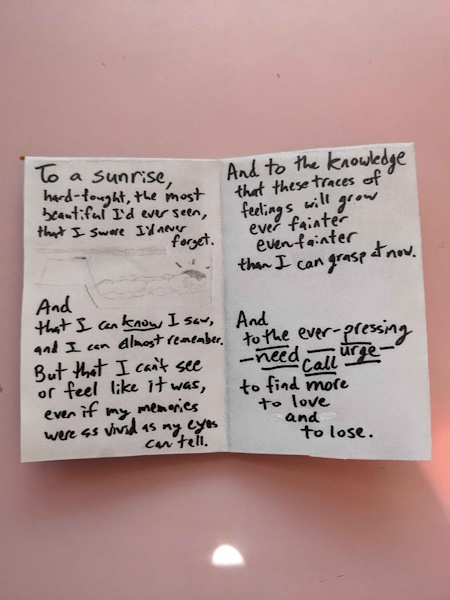 To a sunrise,
hard-fought, the most
beautiful I'd ever seen,
that I swore I'd never
forget.
And
that I can know I saw,
and I can almost remember.
But that I can't see
or feel like it was,
even if my memories
were as vivid as my eyes
can tell.
And to the knowledge
that these traces of
feelings will grow
ever fainter
even fainter
than I can grasp at now.
And
to the ever-pressing
-need - urge-
call
to find more
to love
and
to lose.